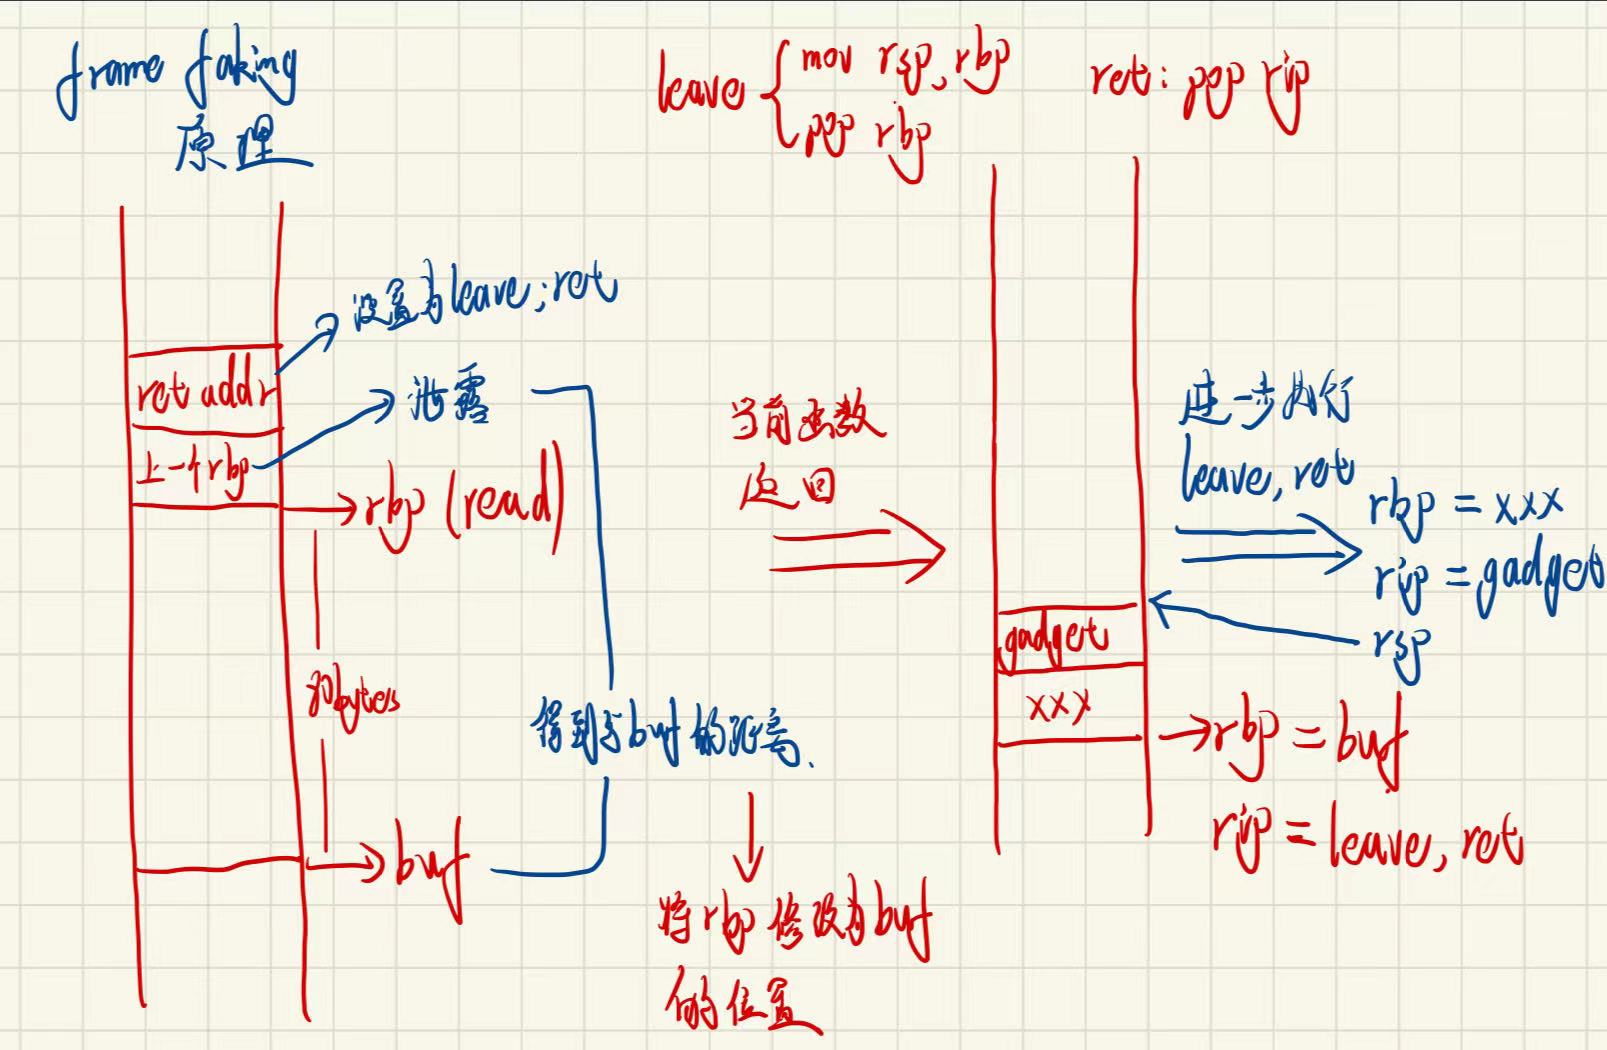 frame faking
原理
leave { mov rsp, rbp
pop rbp
ret: pop rip
设置为leave;ret
ret addr
泄露
上一个rbp
rbp (read)
bytes
得到与buf的距离.
buf
将rbp修改为buf
的位置
当前函数
返回
进一步执行
leave, ret
rbp = xxx
rip = gadget
rsp
gadget
xxx
rbp = buf
rip = leave, ret